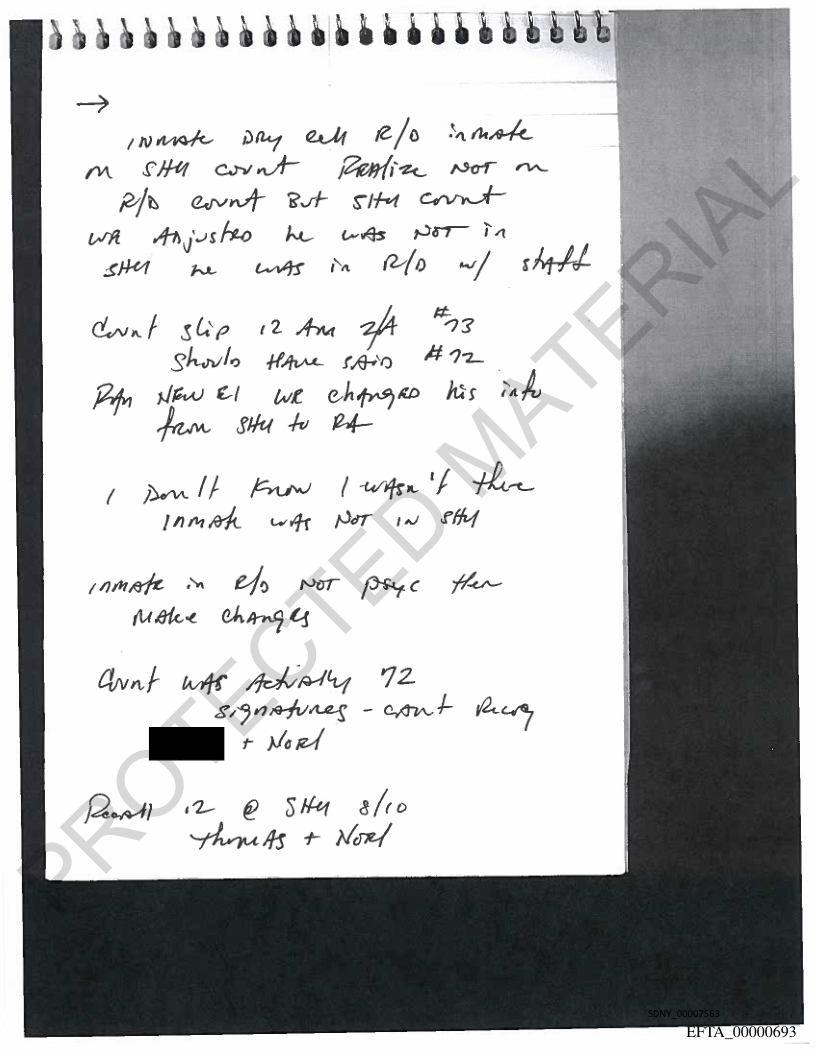 →
Inmate Dry cell R/D inmate
on SHU count Realize NOT on
R/D count But SHU count
WR Adjusted he was NOT in
SHU he was in R/D w/ staff
Count slip 12 Am Z/A #73
should HAve SAiD #72
RAn New E1 WR changed his info
from SHU to RA
I Don't Know I wasn't there
INmate was NOT IN SHU
inmate in R/D NOT psyc then
Make changes
Count was Actually 72
signatures - can't Recog
+ Noel
Recall 12 @ SHU 8/10
thomAs + Noel
PROTECTED MATERIAL
SDNY_00007563
EFTA_00000693